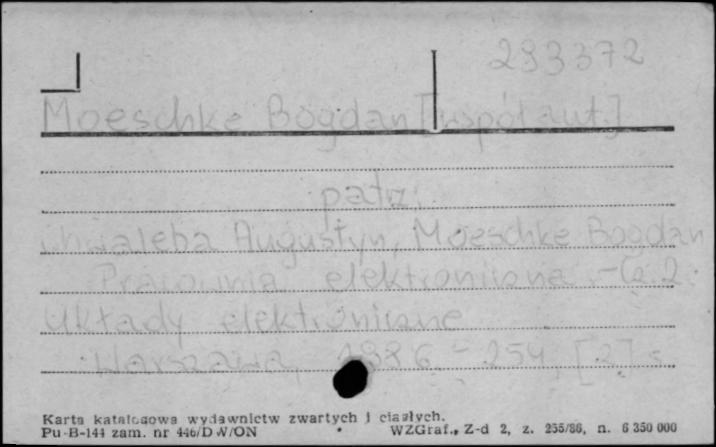 293372
Moeschke Bogdan [współaut.]
patrz:
Chwaleba Augustyn, Moeschke Bogdan
Pracownia elektroniczna. - Cz. 2:
Układy elektroniczne
Warszawa, 1986. - 254, [2] s.
Karta katalogowa wydawnictw zwartych i ciągłych.
Pu-B-144 zam. nr 446/DW/ON WZGraf., Z-d 2, z. 255/86, n. 6 350 000